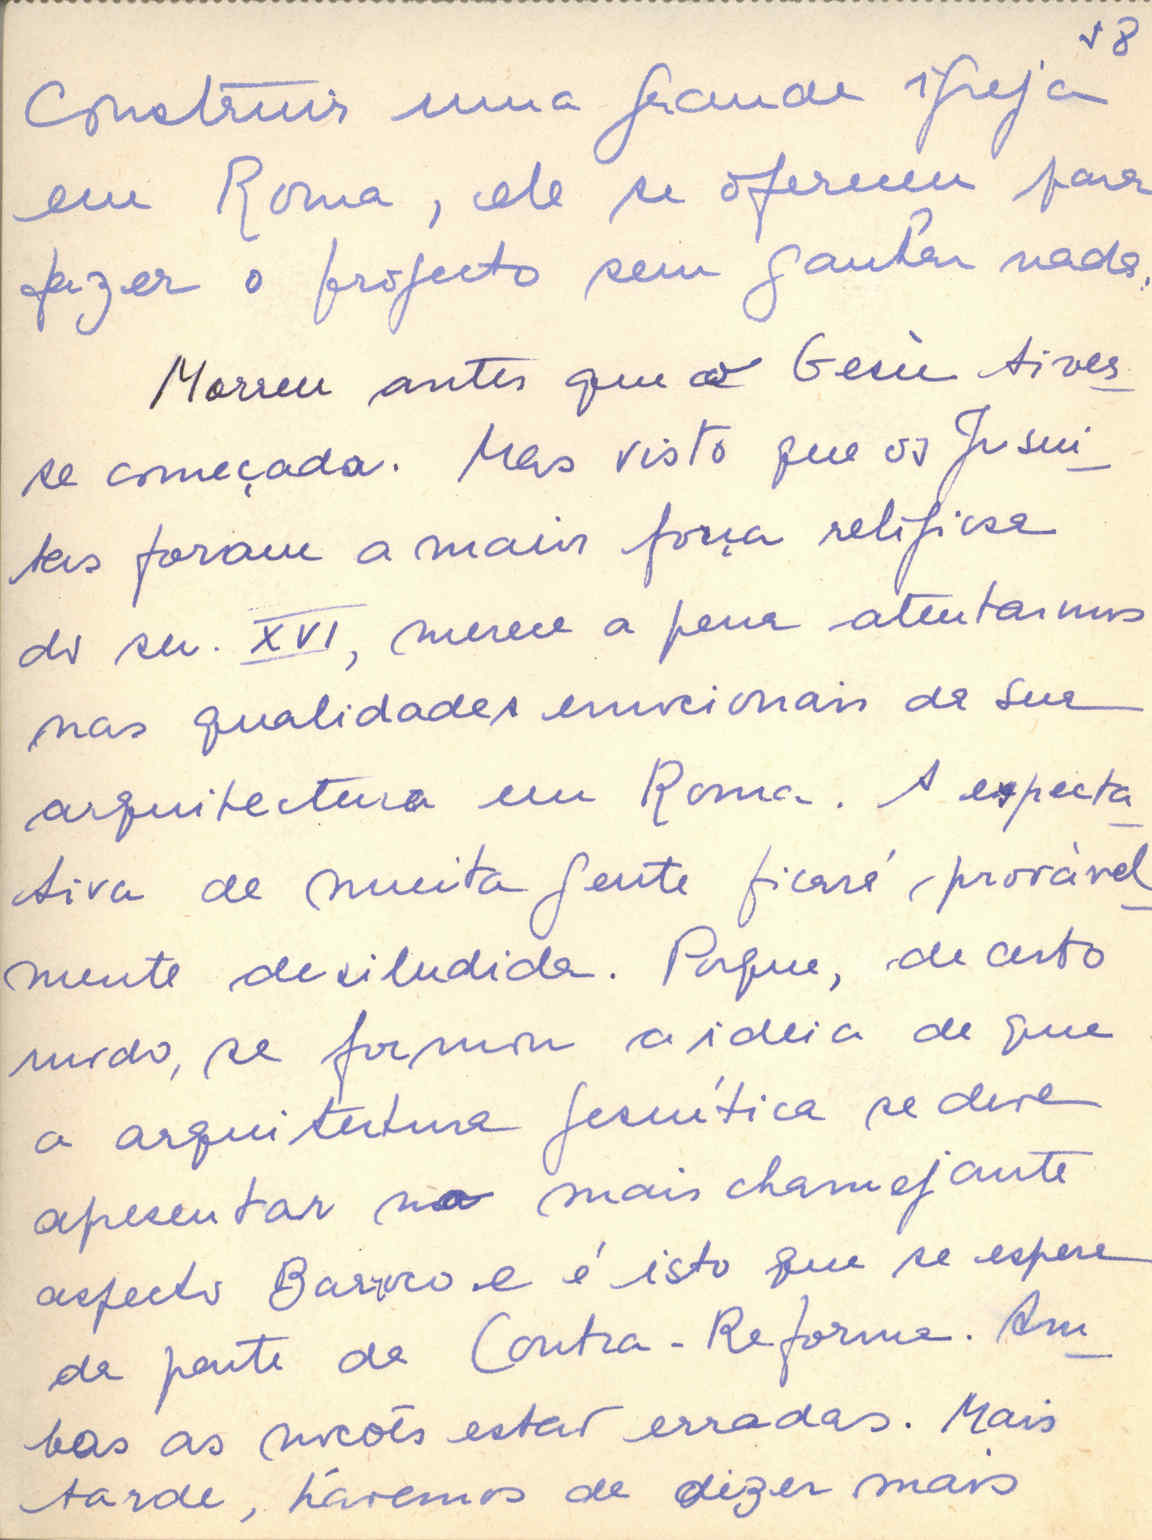 18
Construir uma grande igreja
em Roma, ele se ofereceu para
fazer o projecto sem ganhar nada.
Morreu antes que a Gesù tives-
se começada. Mas visto que os Jesui-
tas foram a maior força religiosa
do sec. XVI, merece a pena atentarmos
nas qualidades emocionais da sua
arquitectura em Roma. A expecta-
tiva de muita gente ficará provàvel-
mente desiludida. Porque, de certo
modo, se formou a ideia de que
a arquitectura jesuítica se deve
apresentar no mais chamejante
aspecto Barroco e é isto que se espera
da parte da Contra-Reforma. Am-
bas as noções estão erradas. Mais
tarde, havemos de dizer mais